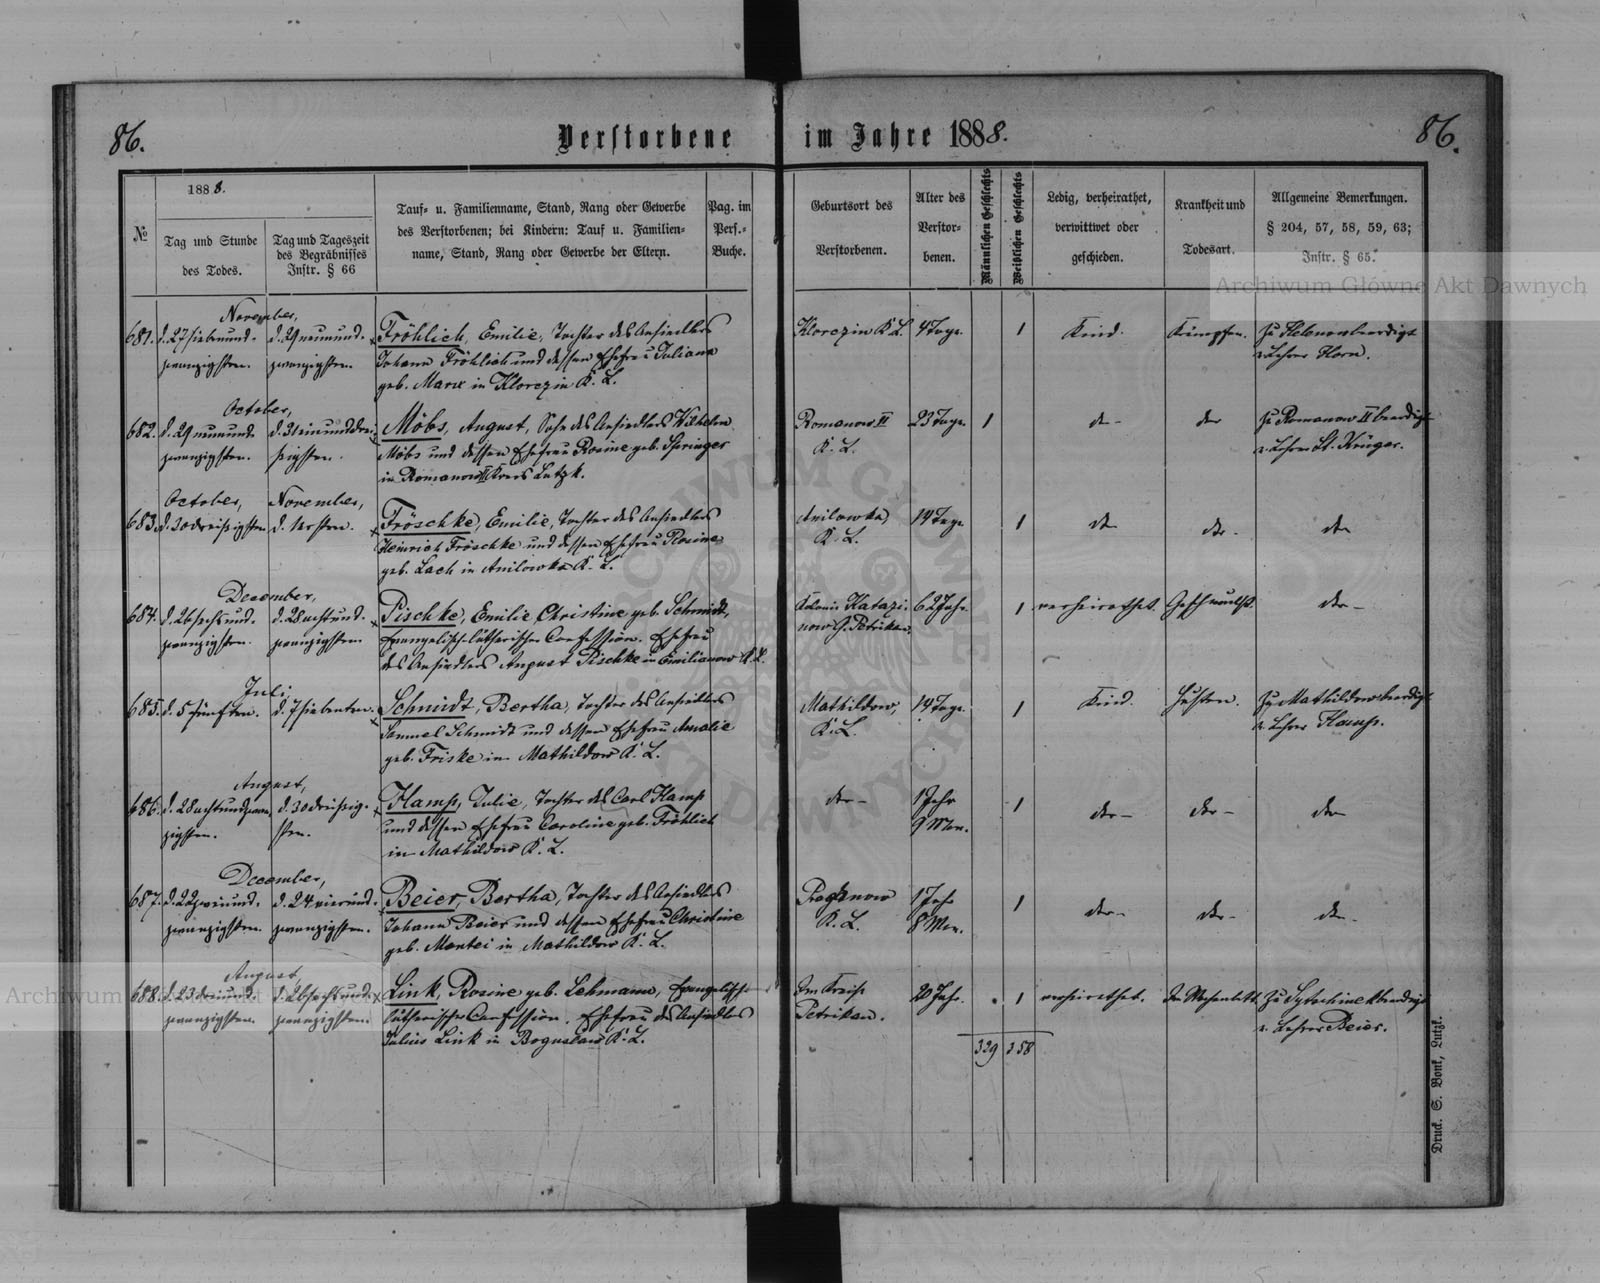 86.
Verstorbene im Jahre 1888.
86.
№
1888.
Tag und Stunde
des Todes.
Tag und Tageszeit
des Begräbnisses
Instr. § 66
Tauf- u. Familienname, Stand, Rang oder Gewerbe
des Verstorbenen; bei Kindern: Tauf u. Familien-
name, Stand, Rang oder Gewerbe der Eltern.
Pag. im
Pers.-
Buche.
Geburtsort des
Verstorbenen.
Alter des
Verstor-
benen.
Männlichen Geschlechts
Weiblichen Geschlechts
Ledig, verheirathet,
verwittwet oder
geschieden.
Krankheit und
Todesart.
Allgemeine Bemerkungen.
§ 204, 57, 58, 59, 63;
Instr. § 65.
Archiwum Główne Akt Dawnych
November,
681. d. 27 siebenund- d. 29 neunund- Fröhlich, Emilie, Tochter des Ansiedlers Klorczin K. L. 4 Tage. 1 Kind. Krämpfen. Zu Helenow beerdigt
zwanzigsten. zwanzigsten. Johann Fröhlich und dessen Ehefrau Juliana v. Lehrer Horn.
geb. Marx in Klorczin K. L.
October,
682. d. 29 neunund- d. 31 einunddrei- Möbs, August, Sohn des Ansiedlers Wilhelm Romanow II 23 Tage. 1 do- do- Zu Romanow II beerdigt
zwanzigsten. ßigsten. Möbs und dessen Ehefrau Rosine geb. Springer K. L. v. Lehrer St. Krüger.
in Romanow II Kreis Lutzk.
October, November,
683. d. 30 dreißigsten d. 1 ersten. Fröschke, Emilie, Tochter des Ansiedlers Anilowka, 14 Tage. 1 do- do- do-
Heinrich Fröschke und dessen Ehefrau Rosine K. L.
geb. Lach in Anilowka K. L.
December,
684. d. 26 sechsund- d. 28 achtund- Pischke, Emilie Christine geb. Schmidt, Kolonie Katazi- 62 Jahr. 1 verheirathet. Geschwulst. do-
zwanzigsten. zwanzigsten Evangelisch-lutherischer Confession. Ehefrau now G. Petrikau.
des Ansiedlers August Pischke in Emilianow K. L.
Juli,
685. d. 5 fünften. d. 7 siebenten. Schmidt, Bertha, Tochter des Ansiedlers Mathildow, 14 Tage. 1 Kind. Husten. Zu Mathildow beerdigt
Samuel Schmidt und dessen Ehefrau Amalie K. L. v. Lehrer Hamp.
geb. Friske in Mathildow K. L.
August,
686. d. 28 achtundzwan- d. 30 dreißig- Hamp, Julie, Tochter des Carl Hamp do- 1 Jahr 1 do- do- do-
zigsten. sten. und dessen Ehefrau Caroline geb. Fröhlich 9 Mon.
in Mathildow K. L.
December,
687. d. 22 zweiund- d. 24 vierund- Beier, Bertha, Tochter des Ansiedlers 1 Jahr 1 do- do- do-
zwanzigsten. zwanzigsten. Johann Beier und dessen Ehefrau Christine K. L. 8 Mon.
geb. Montei in Mathildow K. L.
August,
688. d. 23 dreiund- d. 26 sechsund- Link, Rosine geb. Lehmann, Evangelisch- Im Kreise 20 Jahr. 1 verheirathet. Im Wochenbett. beerdigt
zwanzigsten. zwanzigsten. lutherischer Confession. Ehefrau des Ansiedlers Petrikau. v. Lehrer Beier.
Julius Link in Boguslaw K. L.
329 358
Druck. S. Bonk, Lutzk.